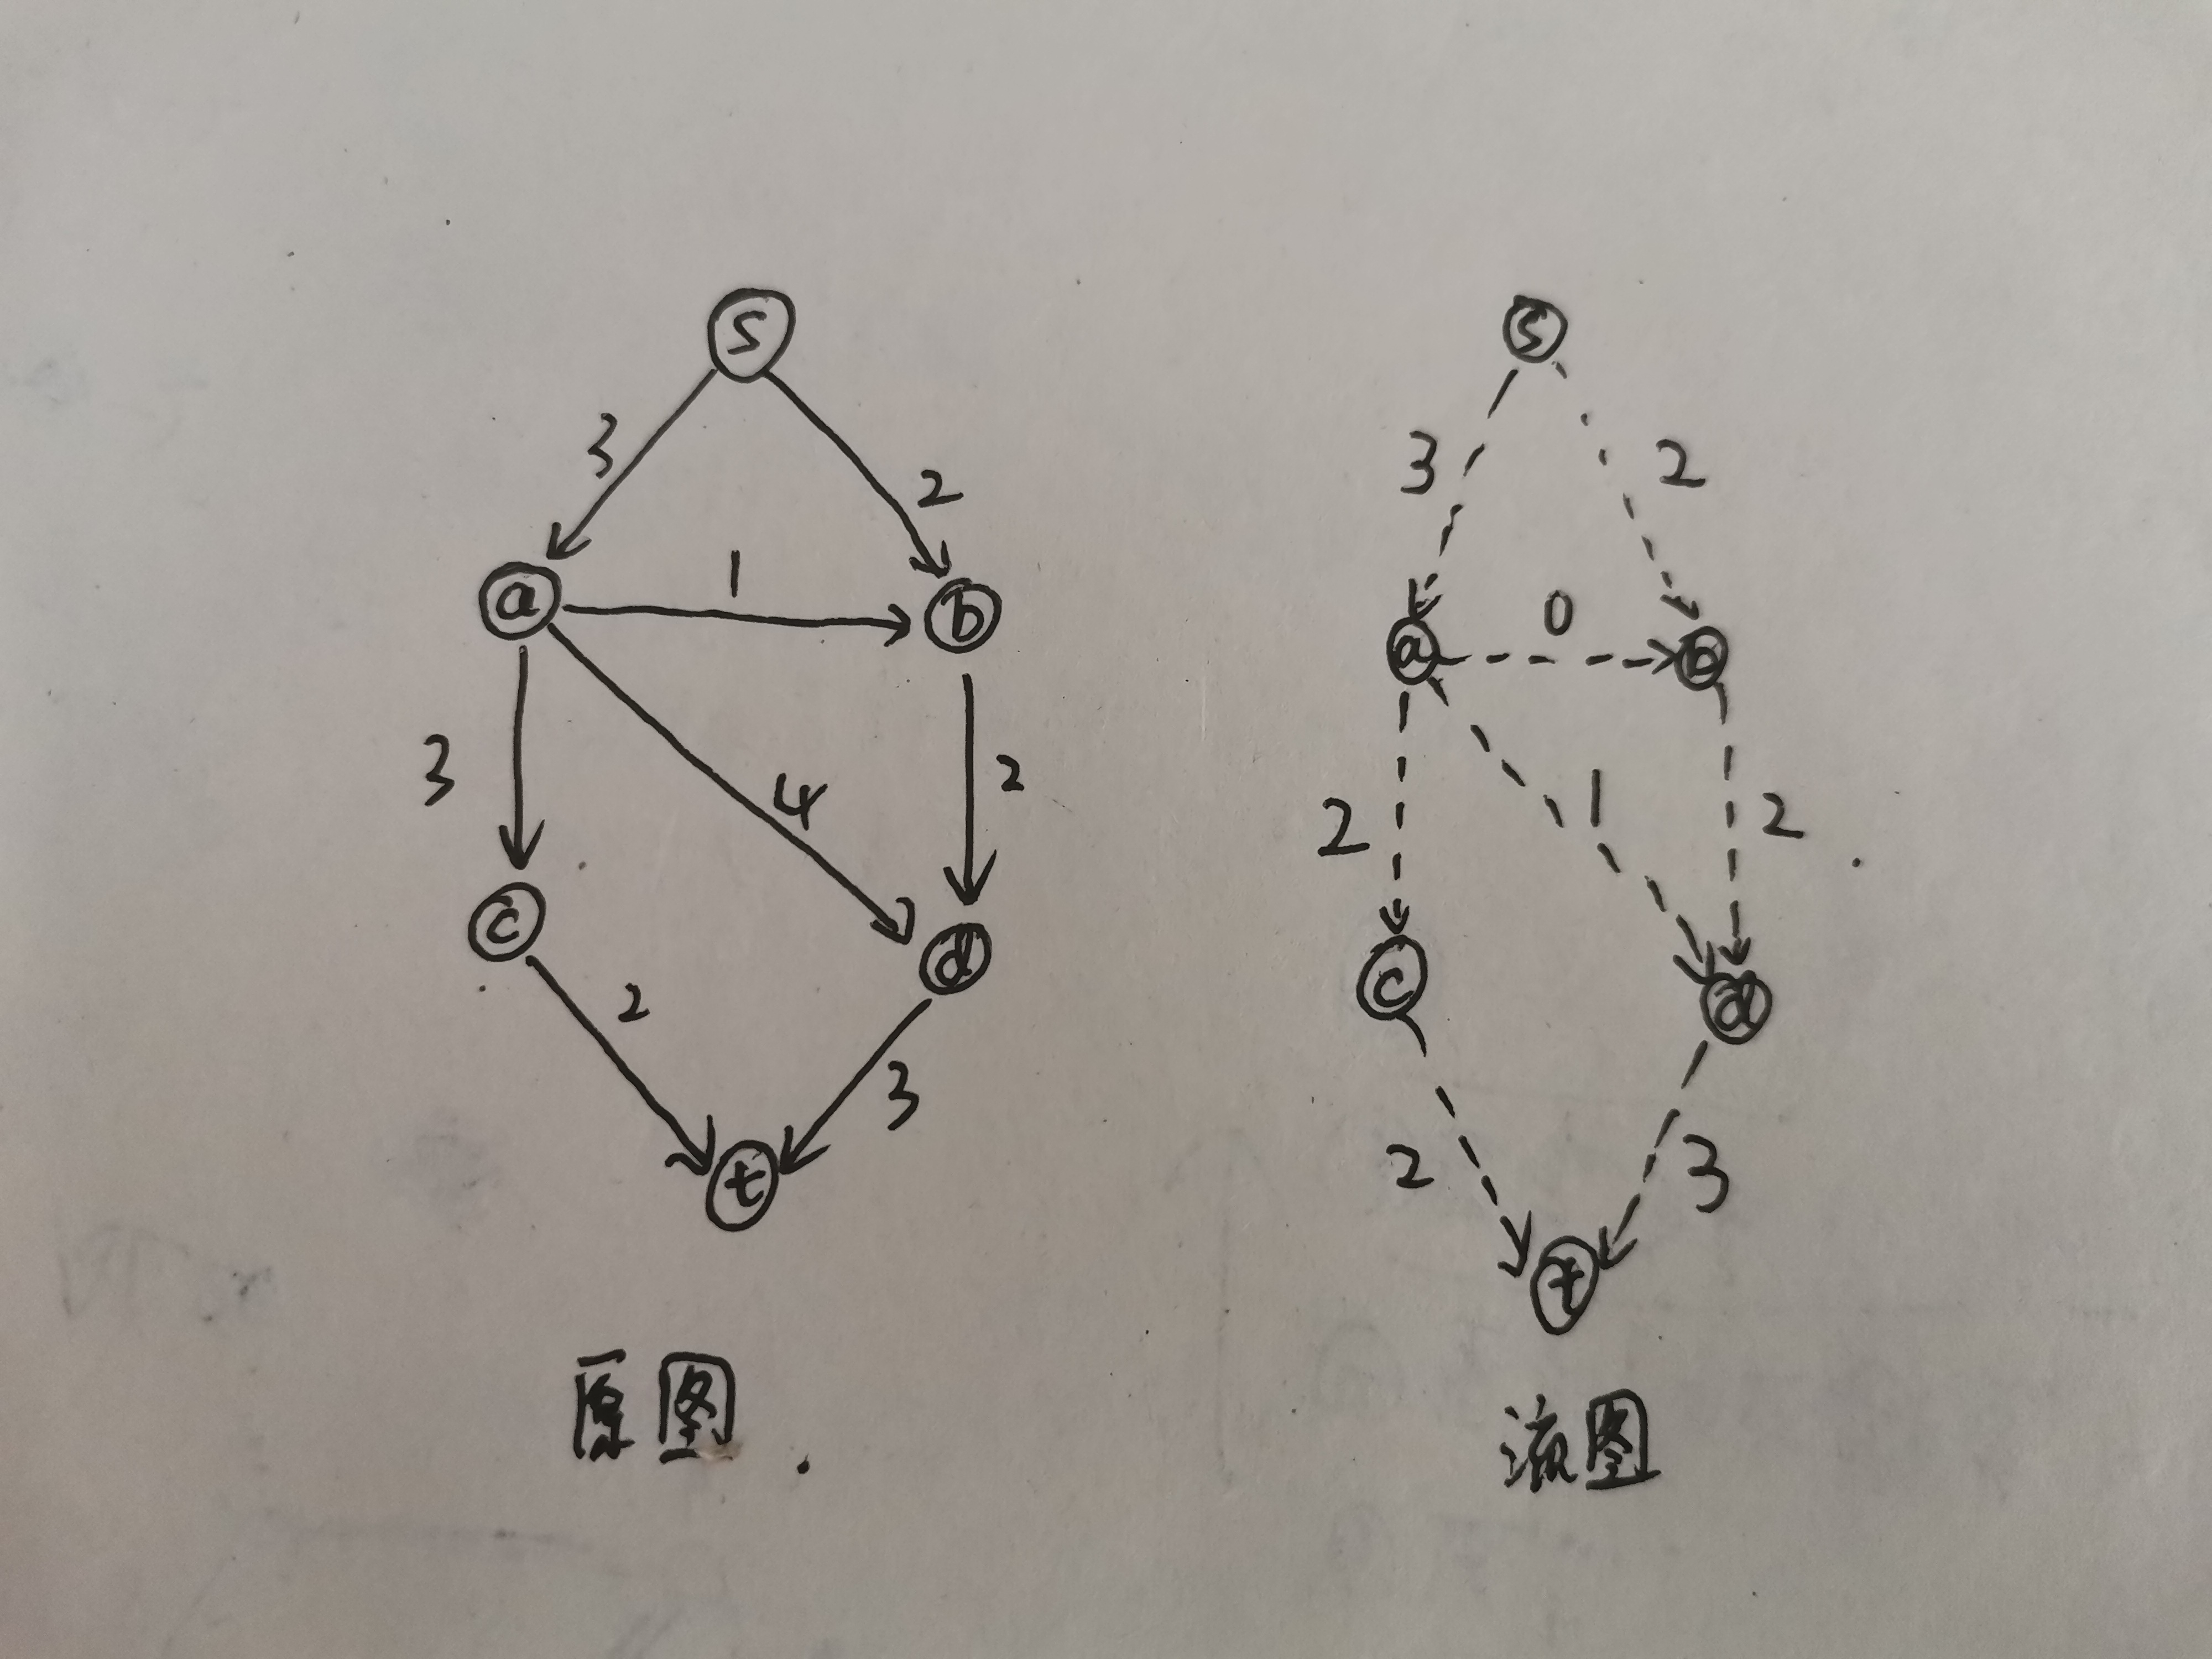 s
3
2
a
1
b
3
4
2
c
d
2
3
t
原图
s
3
2
a
0
b
2
1
2
c
d
2
3
t
流图